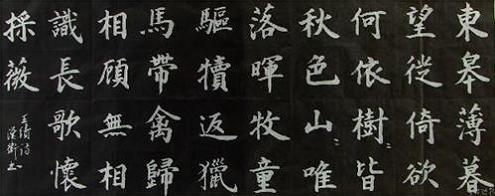 東皋薄暮
望徙倚欲
何依樹〻皆
秋色山〻唯
落暉牧童
驅犢返獵
馬帶禽歸
相顧無相
識長歌懷
採薇
王績詩